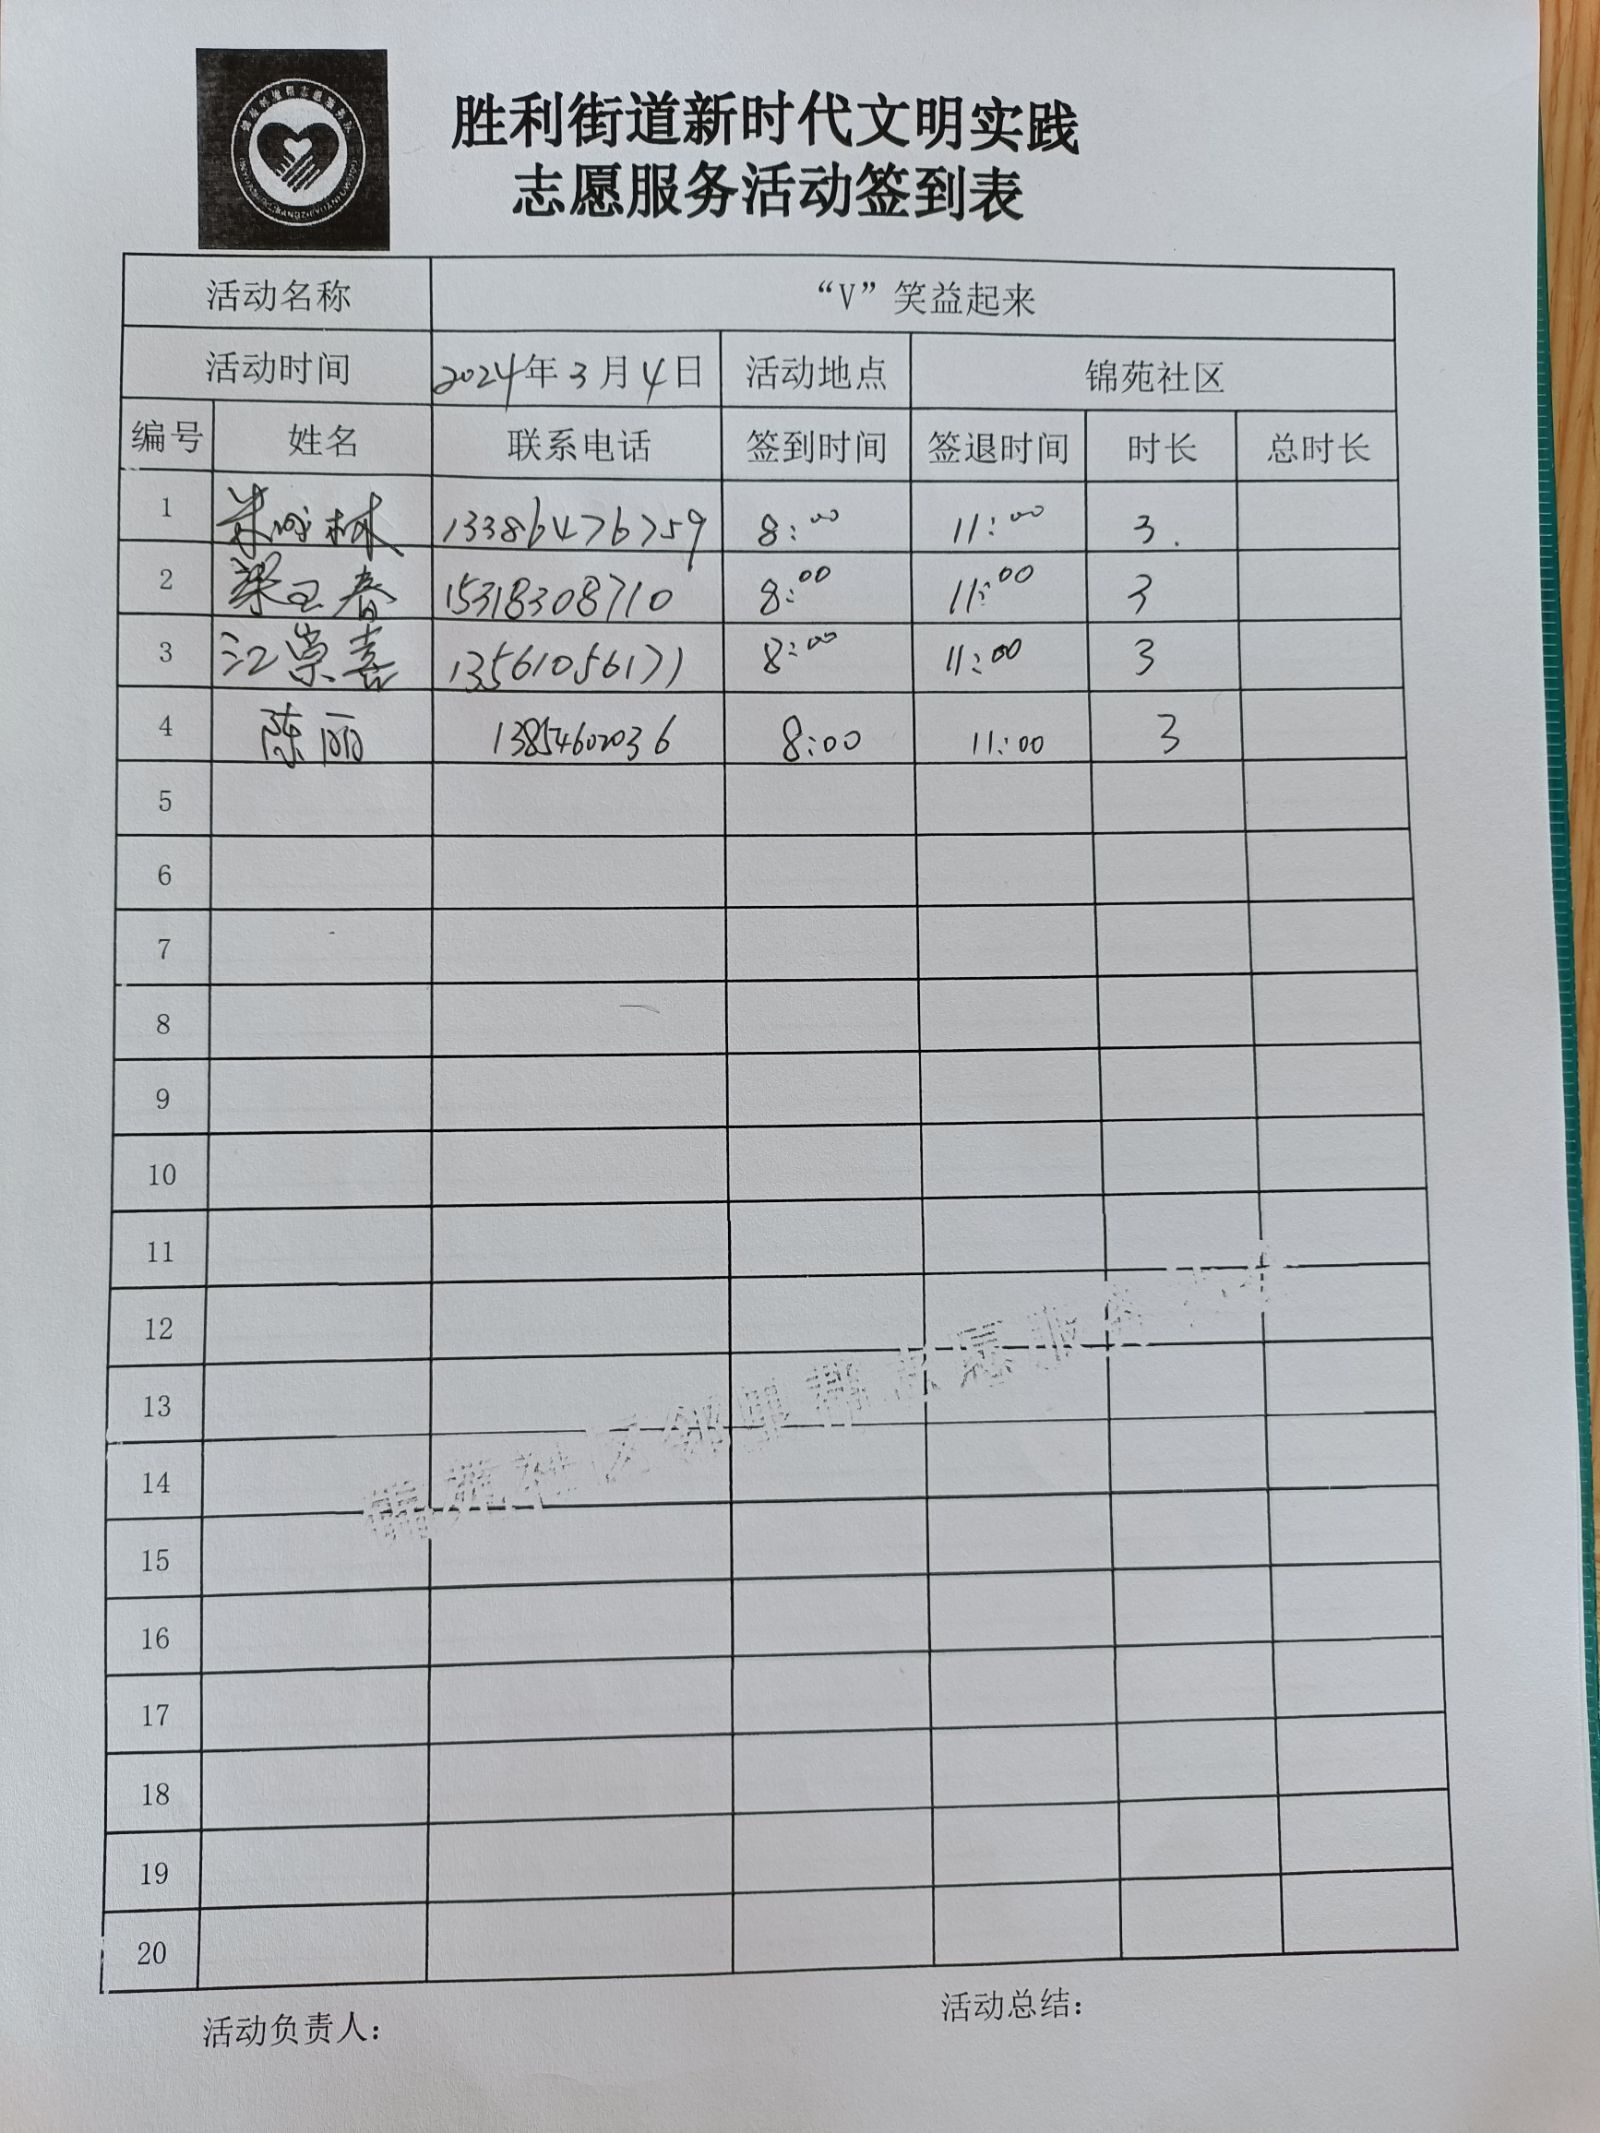 胜利街道新时代文明实践
志愿服务活动签到表
活动名称 “V”笑益起来
活动时间 2024年3月4日 活动地点 锦苑社区
编号 姓名 联系电话 签到时间 签退时间 时长 总时长
1 林 13386476759 8:00 11:00 3
2 梁玉春 15318308710 8:00 11:00 3
3 江崇喜 13561056171 8:00 11:00 3
4 陈丽 13854602036 8:00 11:00 3
5
6
7
8
9
10
11
12
13
14
15
16
17
18
19
20
锦苑社区邻里帮志愿服务
活动负责人: 活动总结: